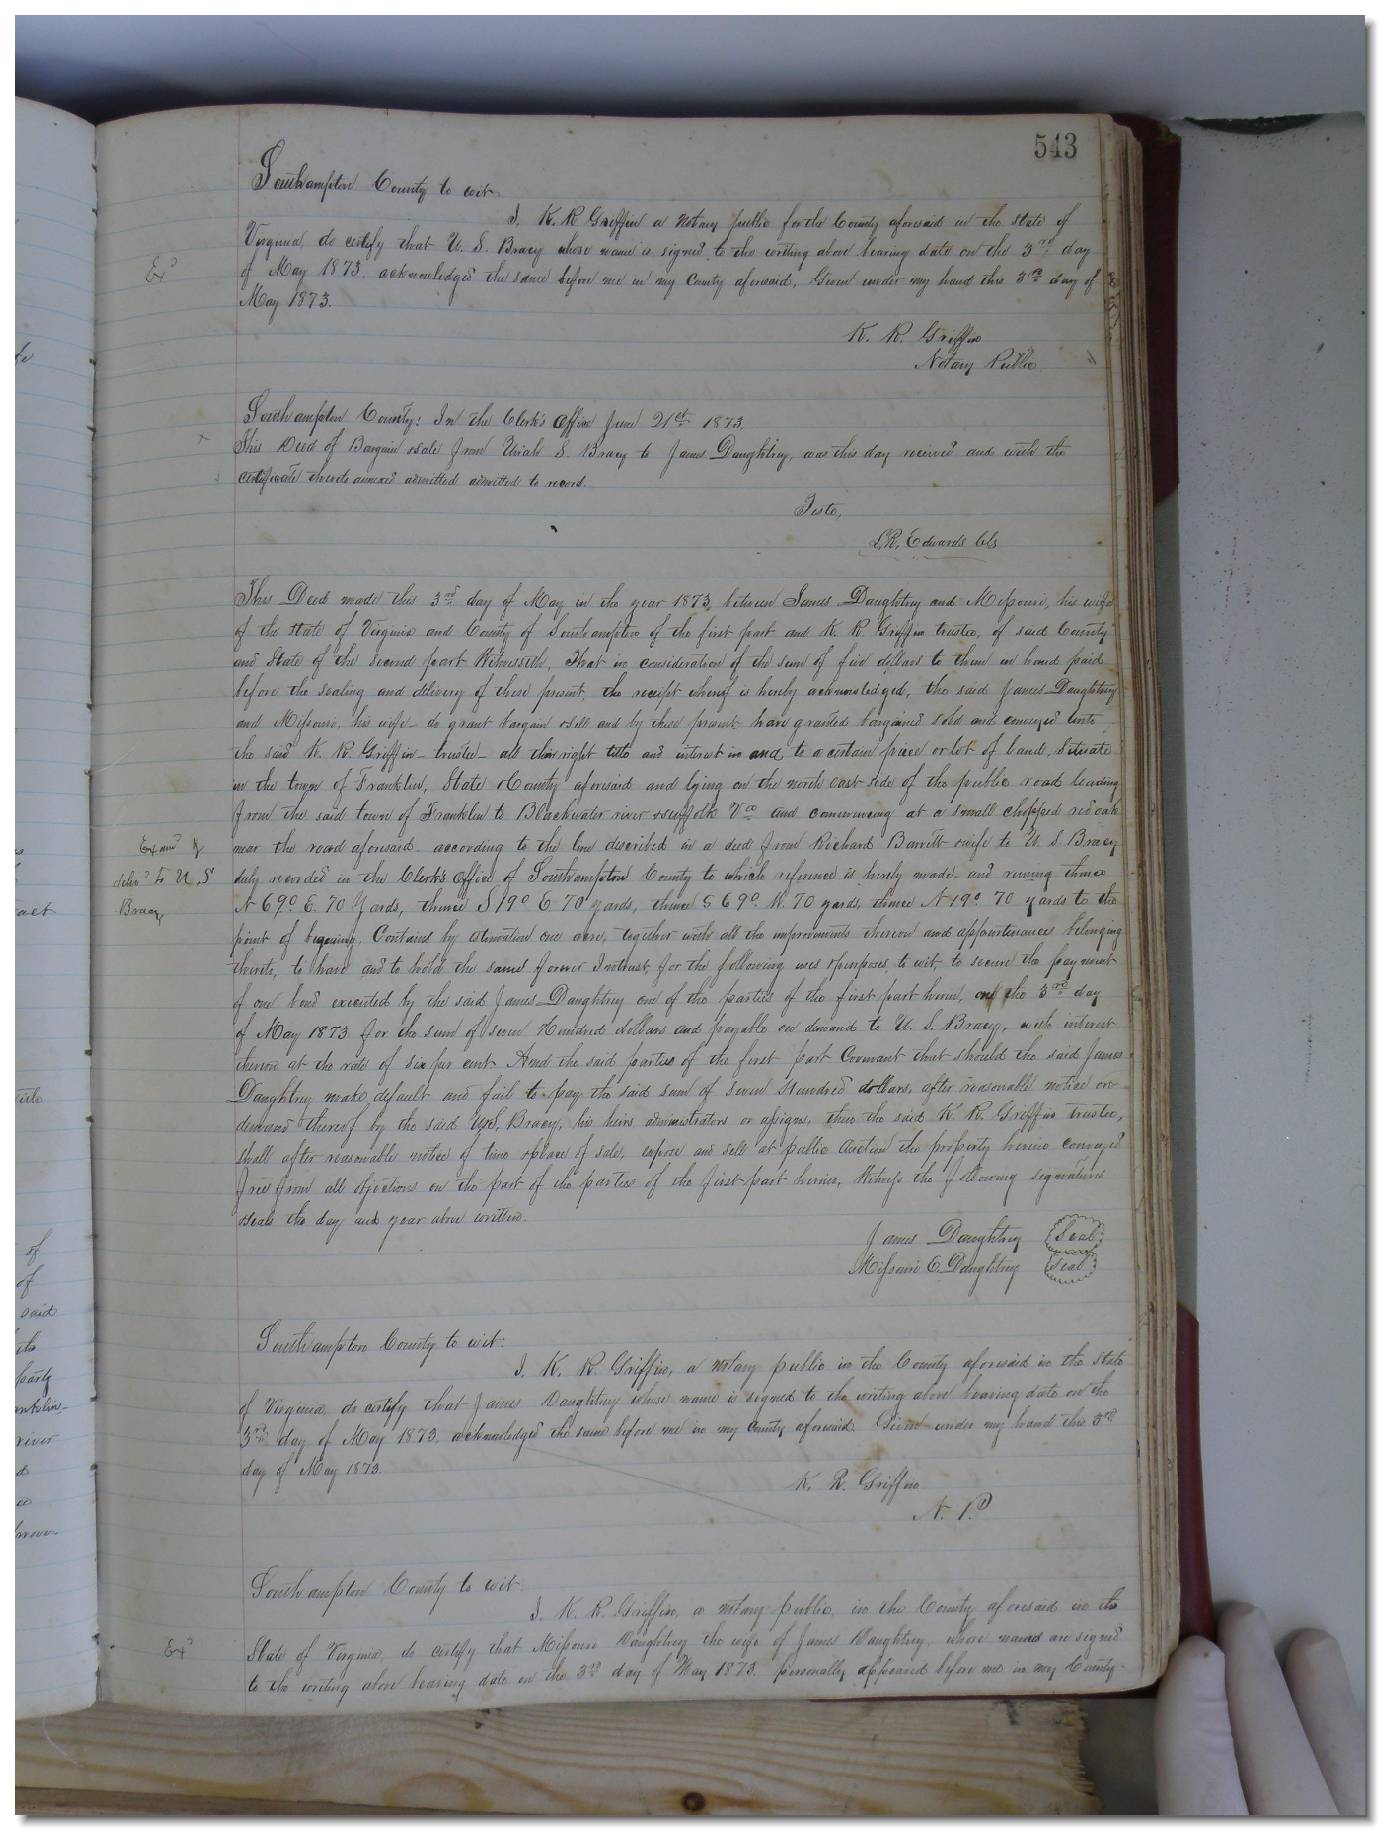 543
Southampton County to wit.
I, K. R. Griffin a Notary public for the County aforesaid in the State of
Virginia, do certify that U. S. Bracy whose name is signed to the writing above bearing date on the 3rd day
Exd
of May 1873. acknowledged the same before me in my County aforesaid. Given under my hand this 3rd day of
May 1873.
K. R. Griffin
Notary Public
Southampton County: In the Clerk's Office June 21st 1873.
This Deed of Bargain & sale from Uriah S. Bracy to James Daughtrey, was this day received and with the
certificate thereto annexed admitted admitted to record.
Teste,
L. R. Edwards Clk
This Deed made this 3rd day of May in the year 1873, between James Daughtrey and Missouri, his wife
of the State of Virginia and County of Southampton of the first part and K. R. Griffin trustee, of said County
and State of the second part Witnesseth, That in consideration of the sum of five dollars to them in hand paid
before the sealing and delivery of these present, the receipt whereof is hereby acknowledged, the said James Daughtrey
and Missouri, his wife do grant bargain & sell and by these present have granted bargained sold and conveyed unto
the said K. R. Griffin trustee all their right title and interest in and to a certain piece or lot of land, Situate
in the town of Franklin, State & County aforesaid and lying on the north east side of the public road leading
from the said town of Franklin to Blackwater river & Suffolk Va and commencing at a small chopped red oak
Examd &
near the road aforesaid according to the line described in a deed from Richard Barrett & wife to U. S. Bracy
delivd to U. S
duly recorded in the Clerk's Office of Southampton County to which reference is hereby made and running thence
Bracy
N 69° E. 70 Yards, thence S 19° E. 70 yards, thence S 69° W. 70 yards, thence N 19° 70 yards to the
point of begening, Contains by estimation one acre, together with all the improvements thereon and appurtenances belonging
thereto, to have and to hold the same forever In trust, for the following uses & purposes, to wit, to secure the payment
of one bond executed by the said James Daughtrey one of the parties of the first part herein, on the 3rd day
of May 1873 for the sum of seven Hundred dollars and payable on demand to U. S. Bracy, with interest
thereon at the rate of six per cent. And the said parties of the first part Covenant that should the said James
Daughtrey make default and fail to pay the said sum of seven Hundred dollars, after reasonable notice or
demand thereof by the said U. S. Bracy, his heirs administrators or assigns, then the said K. R. Griffin trustee,
shall after reasonable notice of time & place of sale, expose and sell at public Auction the property herein conveyed
free from all objections on the part of the parties of the first part herein, Witness the following signatures
& seals the day and year above written.
James Daughtrey Seal
Missouri E. Daughtrey Seal
Southampton County to wit.
I, K. R. Griffin, a notary public in the County aforesaid in the State
of Virginia, do certify that James Daughtrey whose name is signed to the writing above bearing date on the
3rd day of May 1873, acknowledged the same before me in my County aforesaid. Given under my hand this 3rd
day of May 1873.
K. R. Griffin
N. P.
Southampton County to wit.
I, K. R. Griffin, a notary public, in the County aforesaid in the
Exd
State of Virginia, do certify that Missouri Daughtrey the wife of James Daughtrey, whose names are signed
to the writing above bearing date on the 3rd day of May 1873. personally appeared before me in my County